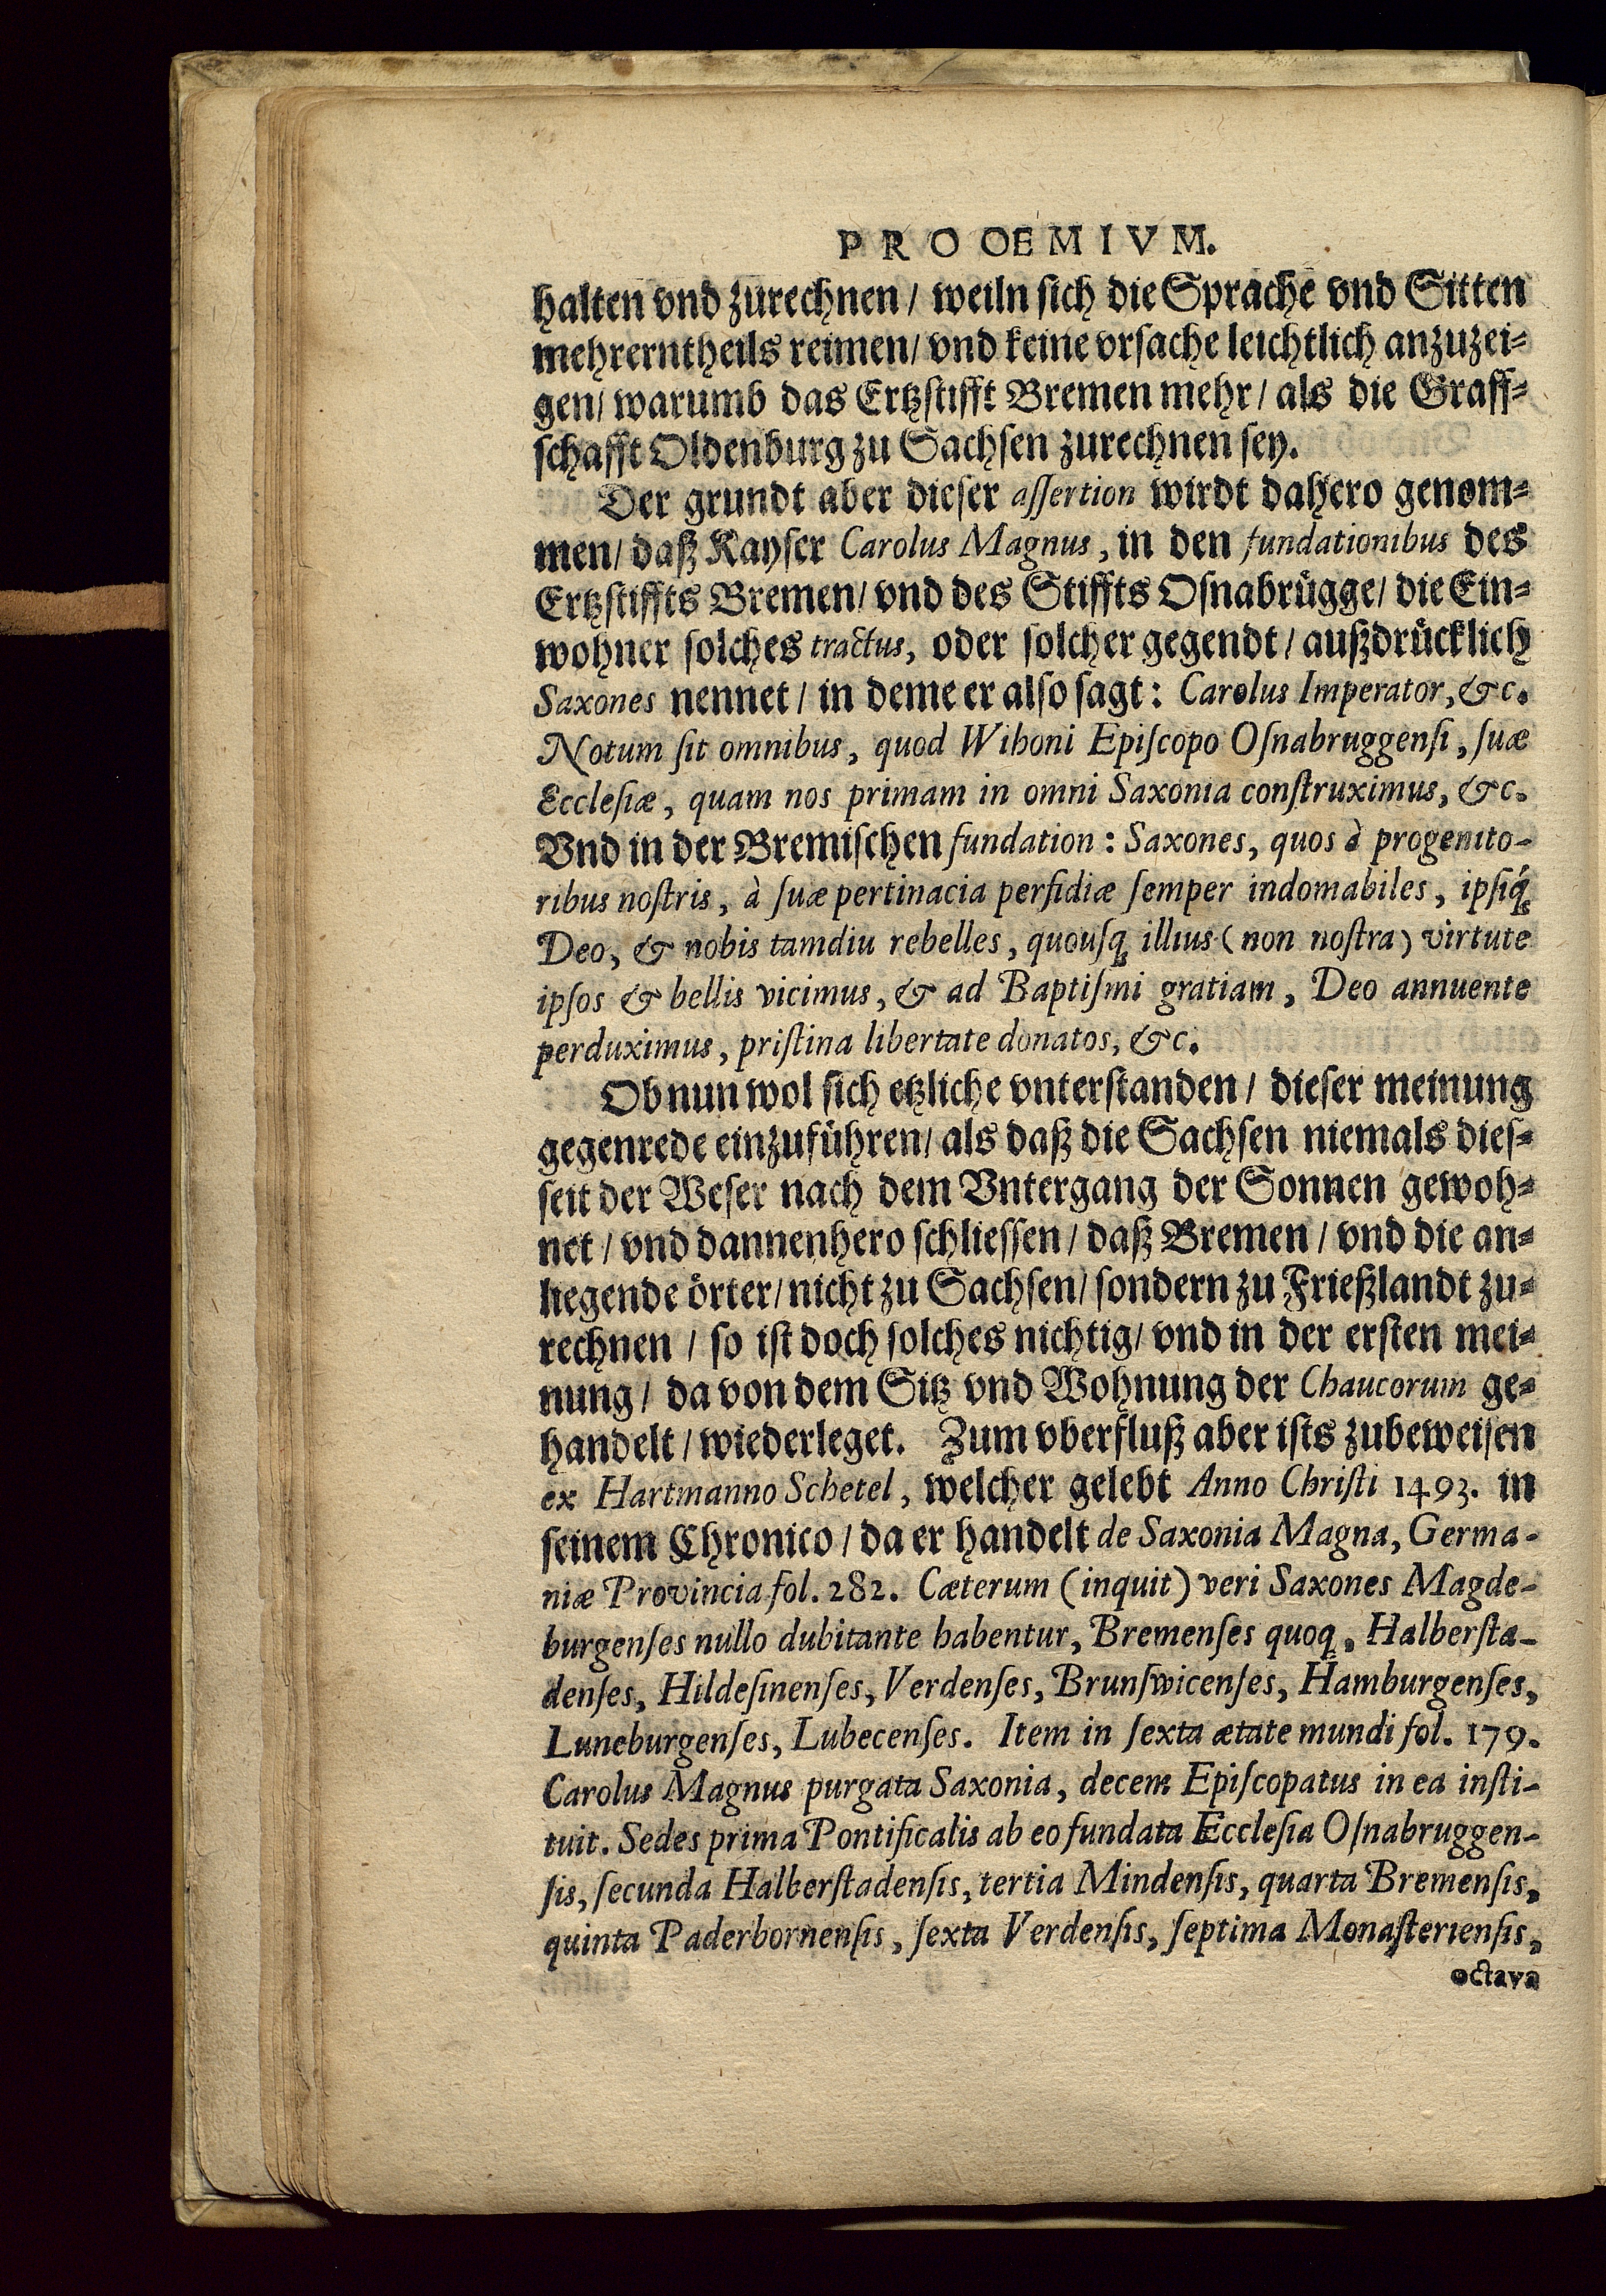 PROOEMIVM.
halten vnd zurechnen / weiln sich die Sprache vnd Sitten
mehrerntheils reimen / vnd keine vrsache leichtlich anzuzei-
gen / warumb das Ertzstifft Bremen mehr / als die Graff-
schafft Oldenburg zu Sachsen zurechnen sey.
Der grundt aber dieser aſſertion wirdt dahero genom-
men / daß Kayser Carolus Magnus, in den fundationibus des
Ertzstiffts Bremen / vnd des Stiffts Osnabrügge / die Ein-
wohner solches tractus, oder solcher gegendt / außdrücklich
Saxones nennet / in deme er also sagt: Carolus Imperator, &c.
Notum ſit omnibus, quod Wihoni Epiſcopo Oſnabruggenſi, ſuæ
Eccleſiæ, quam nos primam in omni Saxonia conſtruximus, &c.
Vnd in der Bremischen fundation: Saxones, quos à progenito-
ribus noſtris, à ſuæ pertinacia perfidiæ ſemper indomabiles, ipſiq́;
Deo, & nobis tamdiu rebelles, quouſq; illius (non noſtra) virtute
ipſos & bellis vicimus, & ad Baptiſmi gratiam, Deo annuente
perduximus, priſtina libertate donatos, &c.
Ob nun wol sich etzliche vnterstanden / dieser meinung
gegenrede einzuführen / als daß die Sachsen niemals dies-
seit der Weser nach dem Vntergang der Sonnen gewoh-
net / vnd dannenhero schliessen / daß Bremen / vnd die an-
liegende örter / nicht zu Sachsen / sondern zu Frießlandt zu-
rechnen / so ist doch solches nichtig / vnd in der ersten mei-
nung / da von dem Sitz vnd Wohnung der Chaucorum ge-
handelt / wiederleget. Zum vberfluß aber ists zubeweisen
ex Hartmanno Schetel, welcher gelebt Anno Chriſti 1493. in
seinem Chronico / da er handelt de Saxonia Magna, Germa-
niæ Provincia fol. 282. Cæterum (inquit) veri Saxones Magde-
burgenſes nullo dubitante habentur, Bremenſes quoq;, Halberſta-
denſes, Hildeſinenſes, Verdenſes, Brunſwicenſes, Hamburgenſes,
Luneburgenſes, Lubecenſes. Item in ſexta ætate mundi fol. 179.
Carolus Magnus purgata Saxonia, decem Epiſcopatus in ea inſti-
tuit. Sedes prima Pontificalis ab eo fundata Eccleſia Oſnabruggen-
ſis, ſecunda Halberſtadenſis, tertia Mindenſis, quarta Bremenſis,
quinta Paderbornenſis, ſexta Verdenſis, ſeptima Monaſterienſis,
octava